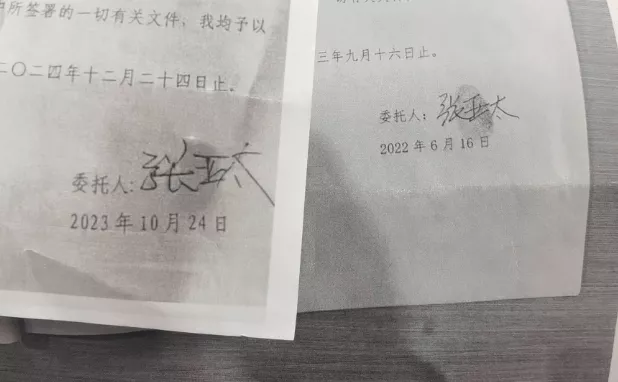 所签署的一切有关文件，我均予以
二〇二四年十二月二十四日止。
委托人：张亚太
2023年10月24日
三年九月十六日止。
委托人：张亚太
2022年6月16日